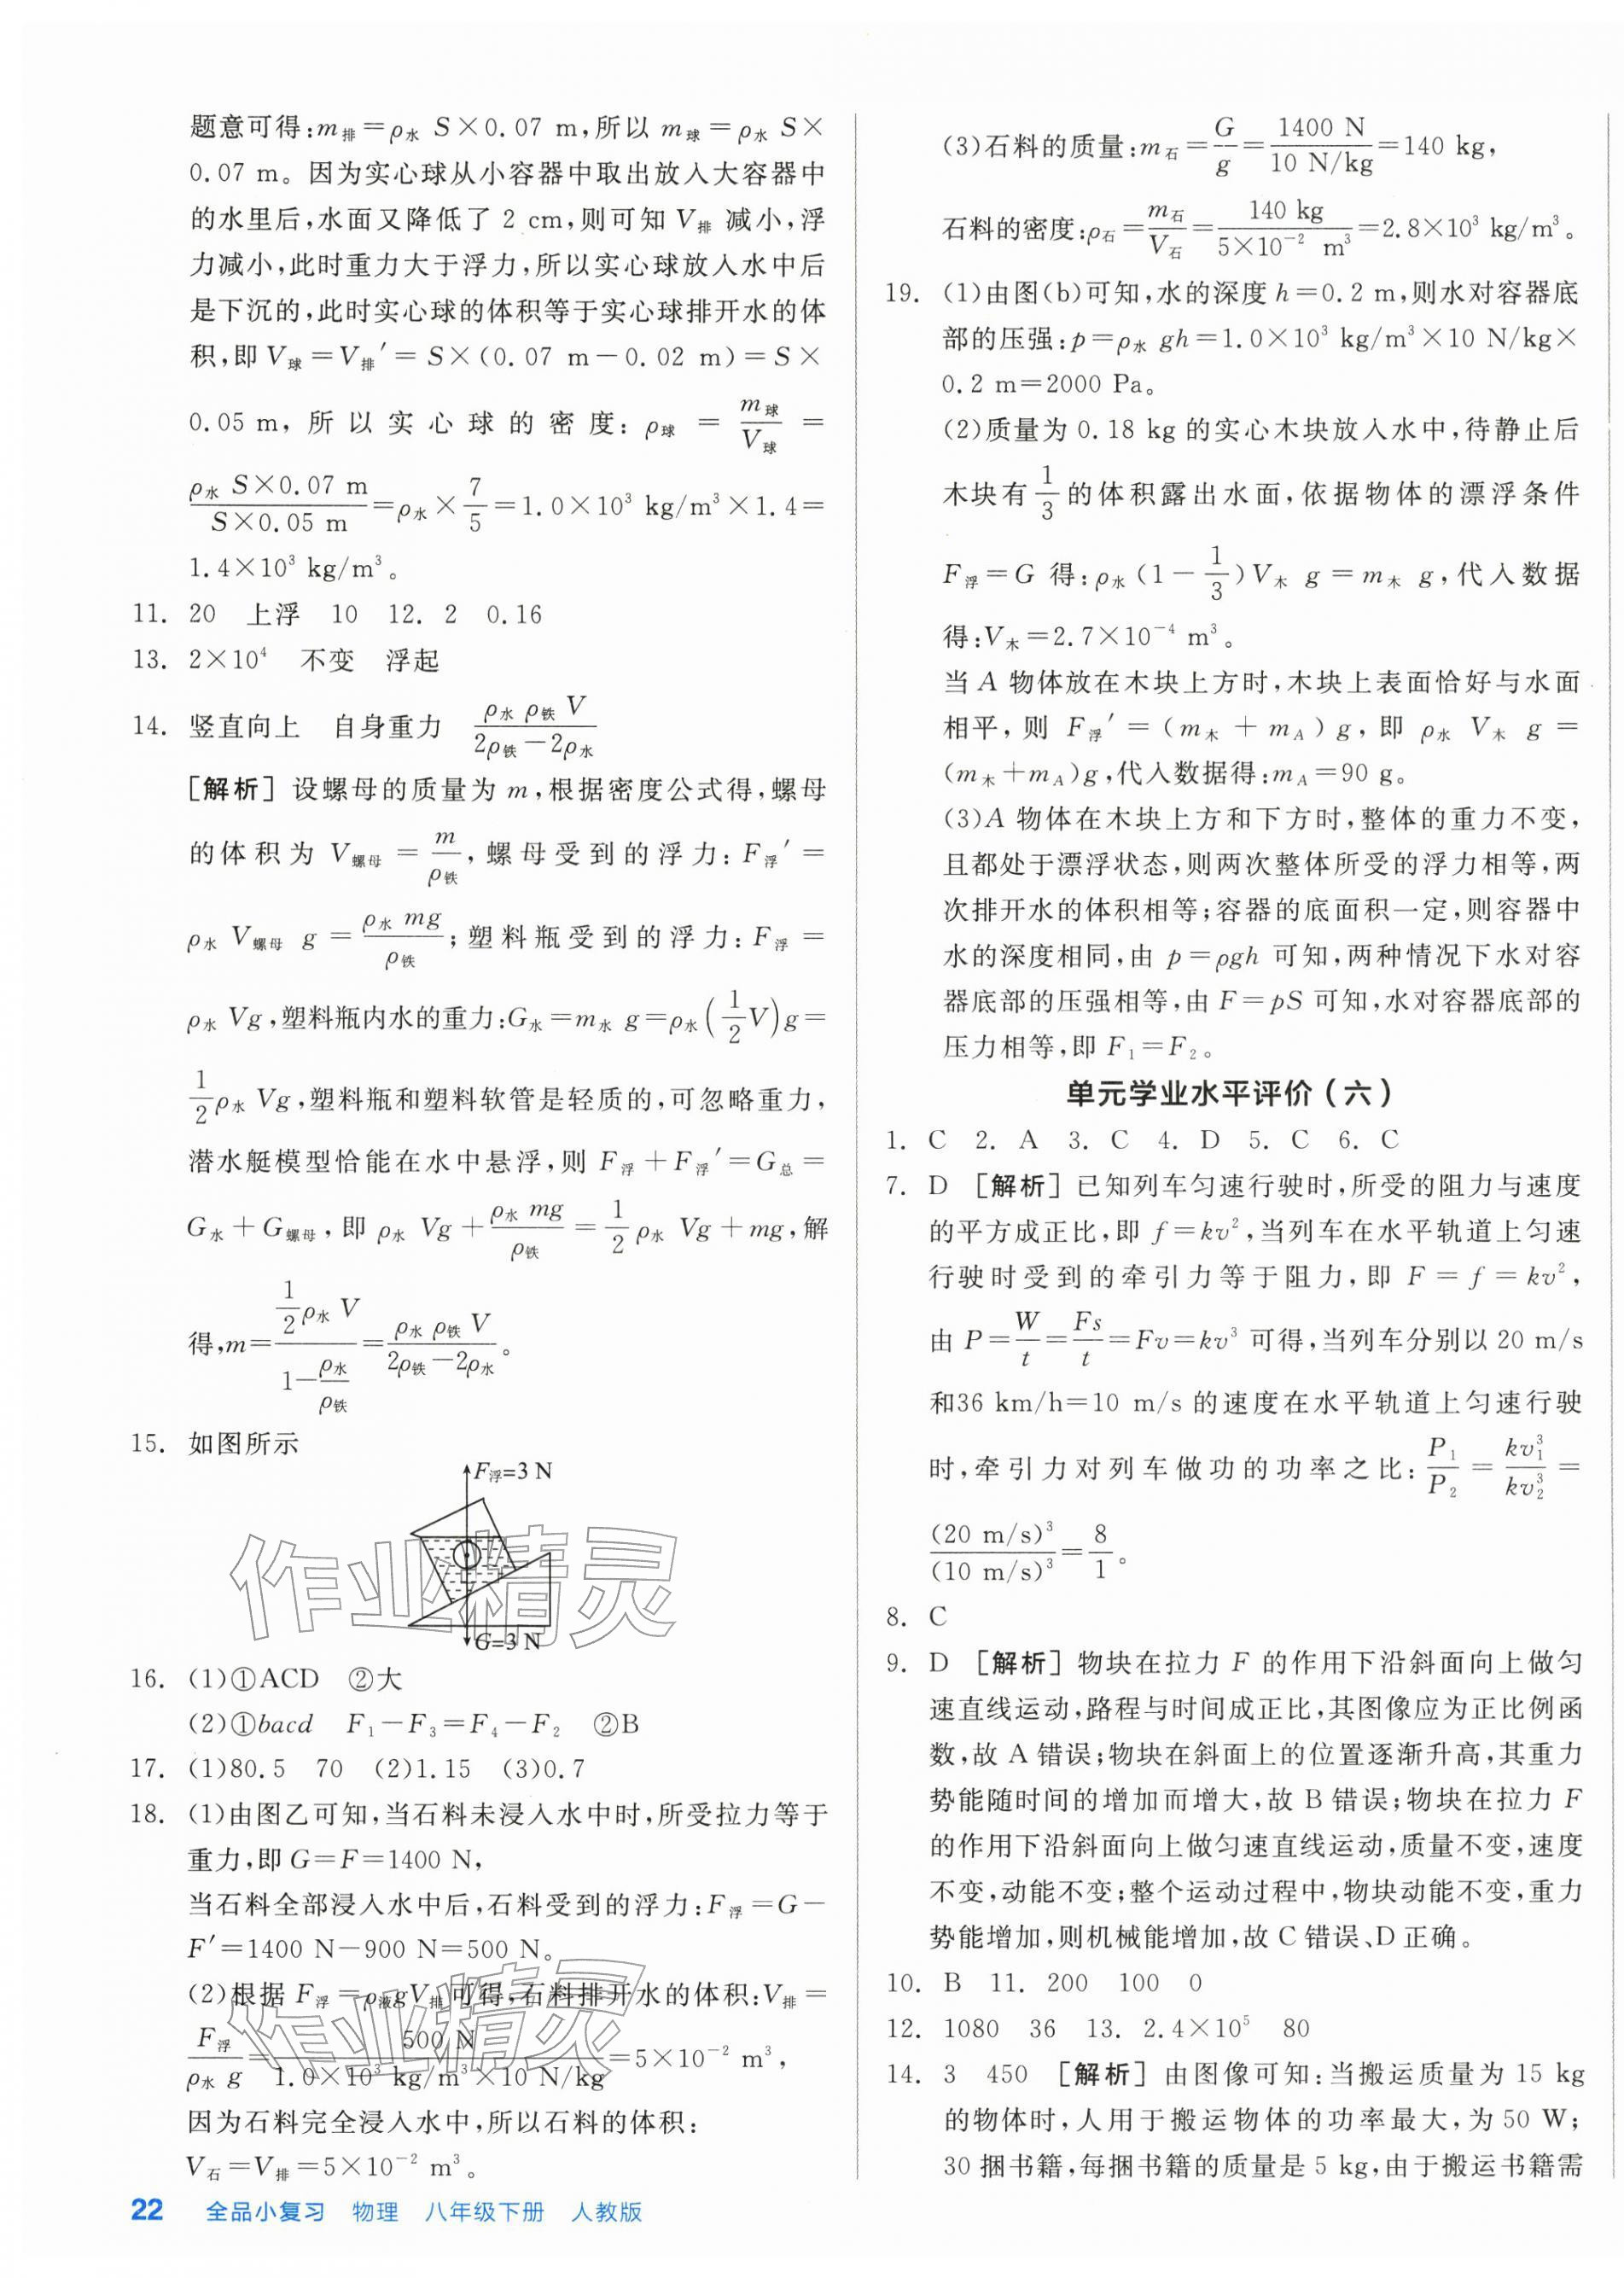 题意可得:m排=ρ水 S×0.07 m,所以 m球=ρ水 S×
0.07 m。因为实心球从小容器中取出放入大容器中
的水里后,水面又降低了 2 cm,则可知 V排 减小,浮
力减小,此时重力大于浮力,所以实心球放入水中后
是下沉的,此时实心球的体积等于实心球排开水的体
积,即 V球=V排′=S×(0.07 m-0.02 m)=S×
0.05 m,所以实心球的密度:ρ球=m球/V球=
(ρ水 S×0.07 m)/(S×0.05 m)=ρ水×7/5=1.0×10³ kg/m³×1.4=
1.4×10³ kg/m³。
11. 20 上浮 10 12. 2 0.16
13. 2×10⁴ 不变 浮起
14. 竖直向上 自身重力 (ρ水ρ铁V)/(2ρ铁-2ρ水)
[解析] 设螺母的质量为 m,根据密度公式得,螺母
的体积为 V螺母=m/ρ铁,螺母受到的浮力:F浮′=
ρ水 V螺母 g=(ρ水 mg)/ρ铁;塑料瓶受到的浮力:F浮=
ρ水 Vg,塑料瓶内水的重力:G水=m水 g=ρ水(1/2 V)g=
1/2 ρ水 Vg,塑料瓶和塑料软管是轻质的,可忽略重力,
潜水艇模型恰能在水中悬浮,则 F浮+F浮′=G总=
G水+G螺母,即 ρ水 Vg+(ρ水 mg)/ρ铁=1/2 ρ水 Vg+mg,解
得,m=(1/2 ρ水 V)/(1-ρ水/ρ铁)=(ρ水ρ铁V)/(2ρ铁-2ρ水)。
15. 如图所示
F浮=3 N
G=3 N
作业精灵
16. (1)①ACD ②大
(2)①bacd F₁-F₃=F₄-F₂ ②B
17. (1)80.5 70 (2)1.15 (3)0.7
18. (1)由图乙可知,当石料未浸入水中时,所受拉力等于
重力,即 G=F=1400 N,
当石料全部浸入水中后,石料受到的浮力:F浮=G-
F′=1400 N-900 N=500 N。
(2)根据 F浮=ρ液gV排 可得,石料排开水的体积:V排=
F浮/(ρ水 g)=500 N/(1.0×10³ kg/m³×10 N/kg)=5×10⁻² m³,
作业精灵
因为石料完全浸入水中,所以石料的体积:
V石=V排=5×10⁻² m³。
22 全品小复习 物理 八年级下册 人教版
(3)石料的质量:m石=G/g=1400 N/(10 N/kg)=140 kg,
石料的密度:ρ石=m石/V石=140 kg/(5×10⁻² m³)=2.8×10³ kg/m³。
19. (1)由图(b)可知,水的深度 h=0.2 m,则水对容器底
部的压强:p=ρ水 gh=1.0×10³ kg/m³×10 N/kg×
0.2 m=2000 Pa。
(2)质量为 0.18 kg 的实心木块放入水中,待静止后
木块有 1/3 的体积露出水面,依据物体的漂浮条件
F浮=G 得:ρ水(1-1/3)V木 g=m木 g,代入数据
得:V木=2.7×10⁻⁴ m³。
当 A 物体放在木块上方时,木块上表面恰好与水面
相平,则 F浮′=(m木+mA)g,即 ρ水 V木 g=
(m木+mA)g,代入数据得:mA=90 g。
(3)A 物体在木块上方和下方时,整体的重力不变,
且都处于漂浮状态,则两次整体所受的浮力相等,两
次排开水的体积相等;容器的底面积一定,则容器中
水的深度相同,由 p=ρgh 可知,两种情况下水对容
器底部的压强相等,由 F=pS 可知,水对容器底部的
压力相等,即 F₁=F₂。
单元学业水平评价(六)
1. C 2. A 3. C 4. D 5. C 6. C
7. D [解析] 已知列车匀速行驶时,所受的阻力与速度
的平方成正比,即 f=kv²,当列车在水平轨道上匀速
行驶时受到的牵引力等于阻力,即 F=f=kv²,
由 P=W/t=Fs/t=Fv=kv³ 可得,当列车分别以 20 m/s
和36 km/h=10 m/s 的速度在水平轨道上匀速行驶
时,牵引力对列车做功的功率之比:P₁/P₂=kv₁³/kv₂³=
(20 m/s)³/(10 m/s)³=8/1。
8. C
9. D [解析] 物块在拉力 F 的作用下沿斜面向上做匀
速直线运动,路程与时间成正比,其图像应为正比例函
数,故 A 错误;物块在斜面上的位置逐渐升高,其重力
势能随时间的增加而增大,故 B 错误;物块在拉力 F
的作用下沿斜面向上做匀速直线运动,质量不变,速度
不变,动能不变;整个运动过程中,物块动能不变,重力
势能增加,则机械能增加,故 C 错误、D 正确。
10. B 11. 200 100 0
12. 1080 36 13. 2.4×10⁵ 80
14. 3 450 [解析] 由图像可知:当搬运质量为 15 kg
的物体时,人用于搬运物体的功率最大,为 50 W;
30 捆书籍,每捆书籍的质量是 5 kg,由于搬运书籍需